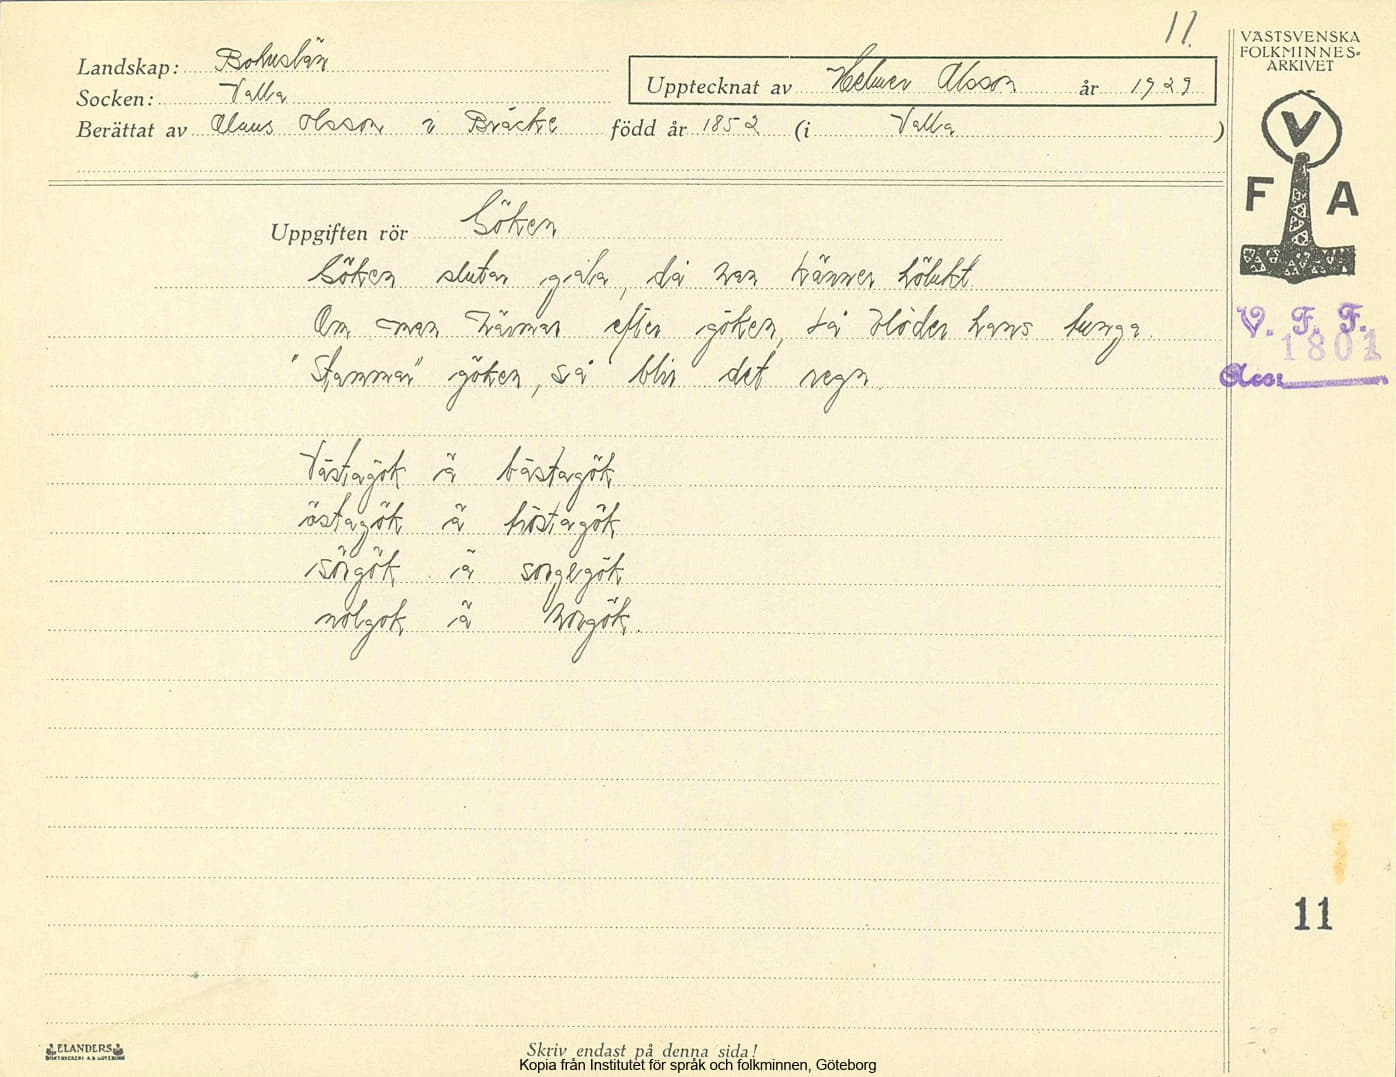 11.
VÄSTSVENSKA
FOLKMINNES-
ARKIVET
Landskap: Bohuslän
Socken: Valla
Upptecknat av Helmer Olsson år 1929
Berättat av Claus Olsson i Bräcke född år 1852 (i Valla )
V
F A
Uppgiften rör Göken
Göken slutar gala, då han känner hölukt.
Om man härmar efter göken, så blöder hans tunga.
"Stammar" göken, så blir det regn.
V. F. F.
1801
Acc:
Västagök ä bästagök
östagök ä tröstagök
sörgök ä sorgegök
nolgok ä horgök.
11
ELANDERS
BOKTRYCKERI A.B. GÖTEBORG
Skriv endast på denna sida!
Kopia från Institutet för språk och folkminnen, Göteborg